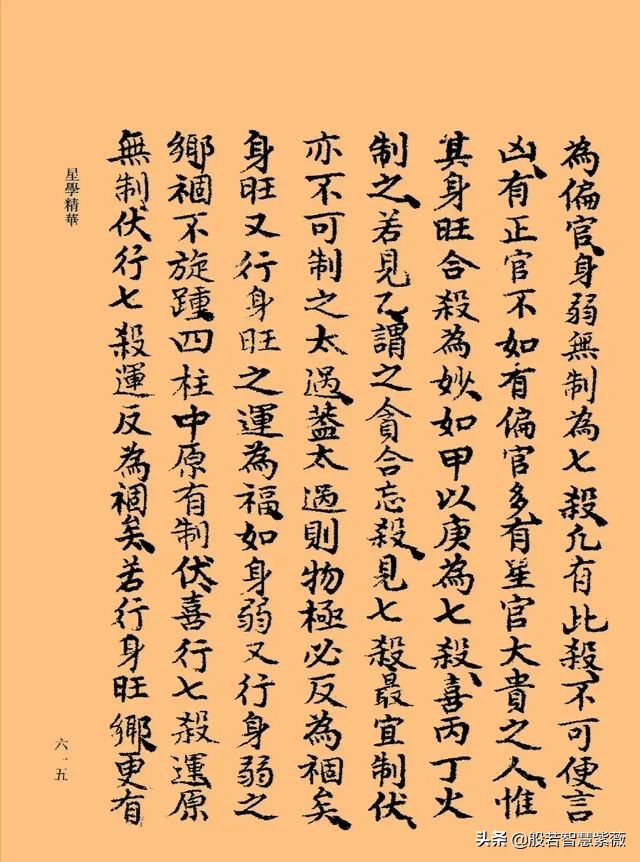 為偏官身弱無制為七殺凡有此殺不可便言
凶有正官不如有偏官多有官大貴之人惟
其身旺合殺為妙如甲以庚為七殺喜丙丁火
制之若見乙謂之貪合忘殺見七殺最宜制伏
亦不可制之太過蓋太過則物極必反為禍矣
身旺又行身旺之運為福如身弱又行身弱之
鄉禍不旋踵四柱中原有制伏喜行七殺運原
無制伏行七殺運反為禍矣若行身旺鄉更有
星學精華
六一五
头条 @般若智慧紫薇